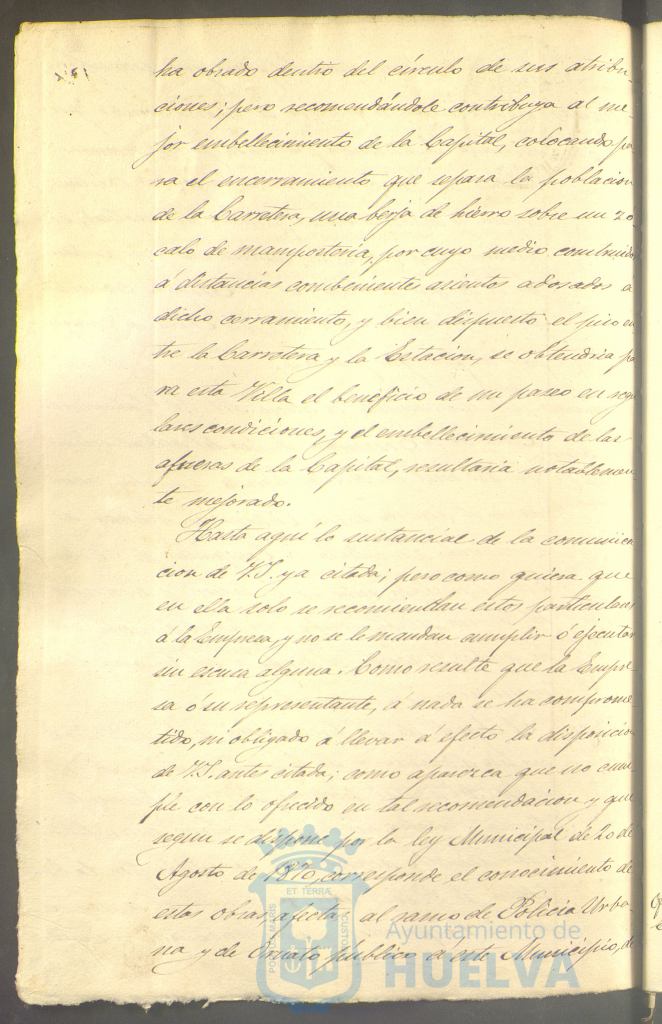 ha obrado dentro del círculo de sus atribu-
ciones; pero recomendándole contribuya al me-
jor embellecimiento de la Capital, colocando pa-
ra el encerramiento que separa la poblacion
de la Carretera, una berja de hierro sobre un zo-
calo de mamposteria, por cuyo medio construidos
á distancias combenientes asientos adosados a
dicho cerramiento, y bien dispuesto el piso en-
tre la Carretera y la Estacion, se obtendria pa-
ra esta Villa el beneficio de un paseo en regu-
lares condiciones, y el embellecimiento de las
afueras de la Capital, resultaria notablemen-
te mejorado.
Hasta aquí lo sustancial de la comunica-
cion de V.S. ya citada; pero como quiera que
en ella solo se recomiendan estos particulares
á la Empresa, y no se le mandan cumplir ó ejecutar
sin escusa alguna. Como resulte que la Empre-
sa ó su representante, á nada se ha comprome-
tido, ni obligado á llevar á efecto la disposicion
de V.S. antes citada; como aparezca que no cum-
ple con lo ofrecido en tal recomendacion y que
segun se dispone por la ley Municipal de 20 de
Agosto de 1870, corresponde el conocimiento de
estas obras, afectas al ramo de Policia Urba-
na y de Ornato público á este Municipio, de
PORTUS MARIS ET TERRÆ CUSTODIA
Ayuntamiento de
HUELVA